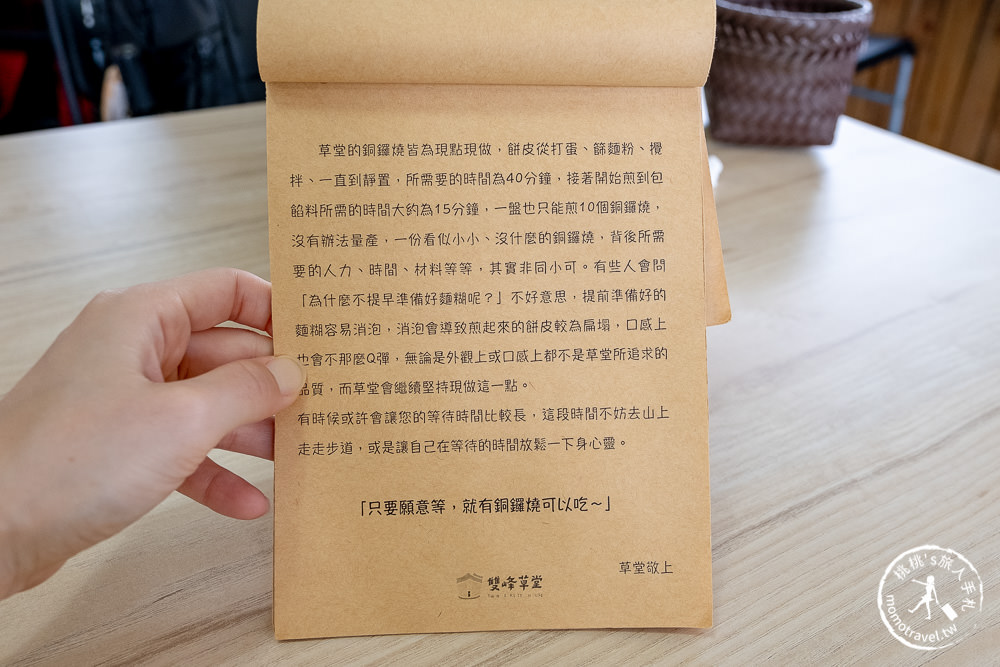 草堂的銅鑼燒皆為現點現做，餅皮從打蛋、篩麵粉、攪
拌、一直到靜置，所需要的時間為40分鐘，接著開始煎到包
餡料所需的時間大約為15分鐘，一盤也只能煎10個銅鑼燒，
沒有辦法量產，一份看似小小、沒什麼的銅鑼燒，背後所需
要的人力、時間、材料等等，其實非同小可。有些人會問
「為什麼不提早準備好麵糊呢？」不好意思，提前準備好的
麵糊容易消泡，消泡會導致煎起來的餅皮較為扁塌，口感上
也會不那麼Q彈，無論是外觀上或口感上都不是草堂所追求的
品質，而草堂會繼續堅持現做這一點。
有時候或許會讓您的等待時間比較長，這段時間不妨去山上
走走步道，或是讓自己在等待的時間放鬆一下身心靈。
「只要願意等，就有銅鑼燒可以吃～」
草堂敬上
雙峰草堂
桃桃's旅人手札
momotravel.tw